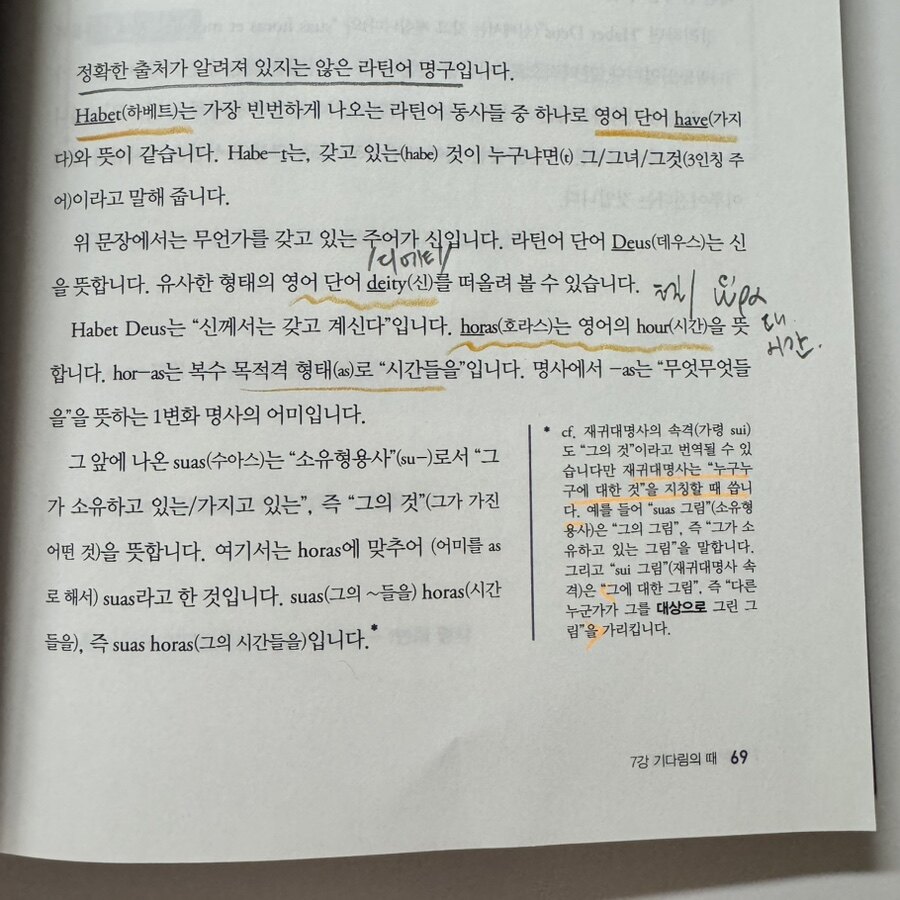 정확한 출처가 알려져 있지는 않은 라틴어 명구입니다.
Habet(하베트)는 가장 빈번하게 나오는 라틴어 동사들 중 하나로 영어 단어 have(가지
다)와 뜻이 같습니다. Habe-t는, 갖고 있는(habe) 것이 누구냐면(t) 그/그녀/그것(3인칭 주
어)이라고 말해 줍니다.
위 문장에서는 무언가를 갖고 있는 주어가 신입니다. 라틴어 단어 Deus(데우스)는 신
/디에티/
을 뜻합니다. 유사한 형태의 영어 단어 deity(신)를 떠올려 볼 수 있습니다.
ὥρα
때.
시간.
Habet Deus는 “신께서는 갖고 계신다”입니다. horas(호라스)는 영어의 hour(시간)을 뜻
합니다. hor-as는 복수 목적격 형태(as)로 “시간들을”입니다. 명사에서 -as는 “무엇무엇들
을”을 뜻하는 1변화 명사의 어미입니다.
그 앞에 나온 suas(수아스)는 “소유형용사”(su-)로서 “그
가 소유하고 있는/가지고 있는”, 즉 “그의 것”(그가 가진
어떤 것)을 뜻합니다. 여기서는 horas에 맞추어 (어미를 as
로 해서) suas라고 한 것입니다. suas(그의 ~들을) horas(시간
들을), 즉 suas horas(그의 시간들을)입니다.*
* cf. 재귀대명사의 속격(가령 sui)
도 “그의 것”이라고 번역될 수 있
습니다만 재귀대명사는 “누구누
구에 대한 것”을 지칭할 때 씁니
다. 예를 들어 “suas 그림”(소유형
용사)은 “그의 그림”, 즉 “그가 소
유하고 있는 그림”을 말합니다.
그리고 “sui 그림”(재귀대명사 속
격)은 “그에 대한 그림”, 즉 “다른
누군가가 그를 대상으로 그린 그
림”을 가리킵니다.
7강 기다림의 때 69